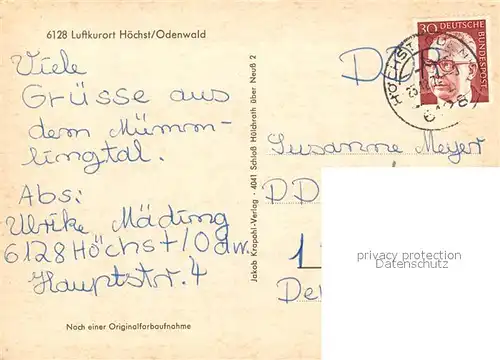 6128 Luftkurort Höchst/Odenwald
Viele
Grüsse aus
dem Mümm-
lingtal.
Abs:
Ulrike Mäding
6128 Höchst/Odw.
Hauptstr. 4
Nach einer Originalfarbaufnahme
Jakob Krapohl-Verlag · 4041 Schloß Hülchrath über Neuß 2
30 DEUTSCHE
BUNDESPOST
DDR
Susanne Meyer
DD
1
De
privacy protection
Datenschutz